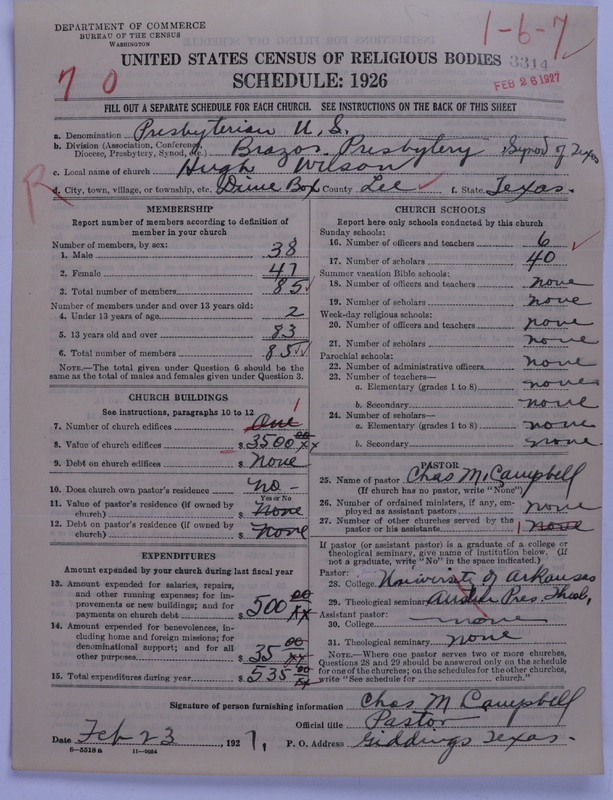 DEPARTMENT OF COMMERCE
BUREAU OF THE CENSUS
WASHINGTON
1-6-7
UNITED STATES CENSUS OF RELIGIOUS BODIES 3314
70
SCHEDULE: 1926
FEB 26 1927
FILL OUT A SEPARATE SCHEDULE FOR EACH CHURCH. SEE INSTRUCTIONS ON THE BACK OF THIS SHEET
a. Denomination Presbyterian U. S.
b. Division (Association, Conference, Diocese, Presbytery, Synod, etc.) Brazos Presbytery Synod of Texas
c. Local name of church Hugh Wilson
R
d. City, town, village, or township, etc. Dime Box County Lee f. State Texas.
MEMBERSHIP
Report number of members according to definition of
member in your church
Number of members, by sex:
1. Male 38
2. Female 47
3. Total number of members 85
Number of members under and over 13 years old:
4. Under 13 years of age 2
5. 13 years old and over 83
6. Total number of members 85
NOTE.—The total given under Question 6 should be
same as the total of males and females given under Question 3.
CHURCH BUILDINGS
See instructions, paragraphs 10 to 12
7. Number of church edifices One 1
8. Value of church edifices $ 3500 00/xx
9. Debt on church edifices $ None
10. Does church own pastor's residence No -
Yes or No
11. Value of pastor's residence (if owned by
church) $ None
12. Debt on pastor's residence (if owned by
church) $ None
EXPENDITURES
Amount expended by your church during last fiscal year
13. Amount expended for salaries, repairs,
and other running expenses; for im-
provements or new buildings; and for
payments on church debt $ 500 00/xx
14. Amount expended for benevolences, in-
cluding home and foreign missions; for
denominational support; and for all
other purposes $ 35 00/xx
15. Total expenditures during year $ 535 00/xx
CHURCH SCHOOLS
Report here only schools conducted by this church
Sunday schools:
16. Number of officers and teachers 6
17. Number of scholars 40
Summer vacation Bible schools:
18. Number of officers and teachers none
19. Number of scholars none
Week-day religious schools:
20. Number of officers and teachers none
21. Number of scholars none
Parochial schools:
22. Number of administrative officers none
23. Number of teachers—
a. Elementary (grades 1 to 8) none
b. Secondary none
24. Number of scholars—
a. Elementary (grades 1 to 8) none
b. Secondary none
PASTOR
25. Name of pastor Chas M. Campbell
(If church has no pastor, write "None")
26. Number of ordained ministers, if any, em-
ployed as assistant pastors none
27. Number of other churches served by the
pastor or his assistant 1 none
If pastor (or assistant pastor) is a graduate of a college or
theological seminary, give name of institution below. (If
not a graduate, write "No" in the space indicated.)
Pastor:
28. College University of Arkansas
29. Theological seminary Austin Pres. Theol,
Assistant pastor:
30. College none
31. Theological seminary none
NOTE.—Where one pastor serves two or more churches,
Questions 28 and 29 should be answered only on the schedule
for one of the churches; on the schedules for the other churches,
write "See schedule for church."
Signature of person furnishing information Chas M Campbell
Official title Pastor
Date Feb 23, 1927, P. O. Address Giddings Texas.
6-5518 a 11-9024